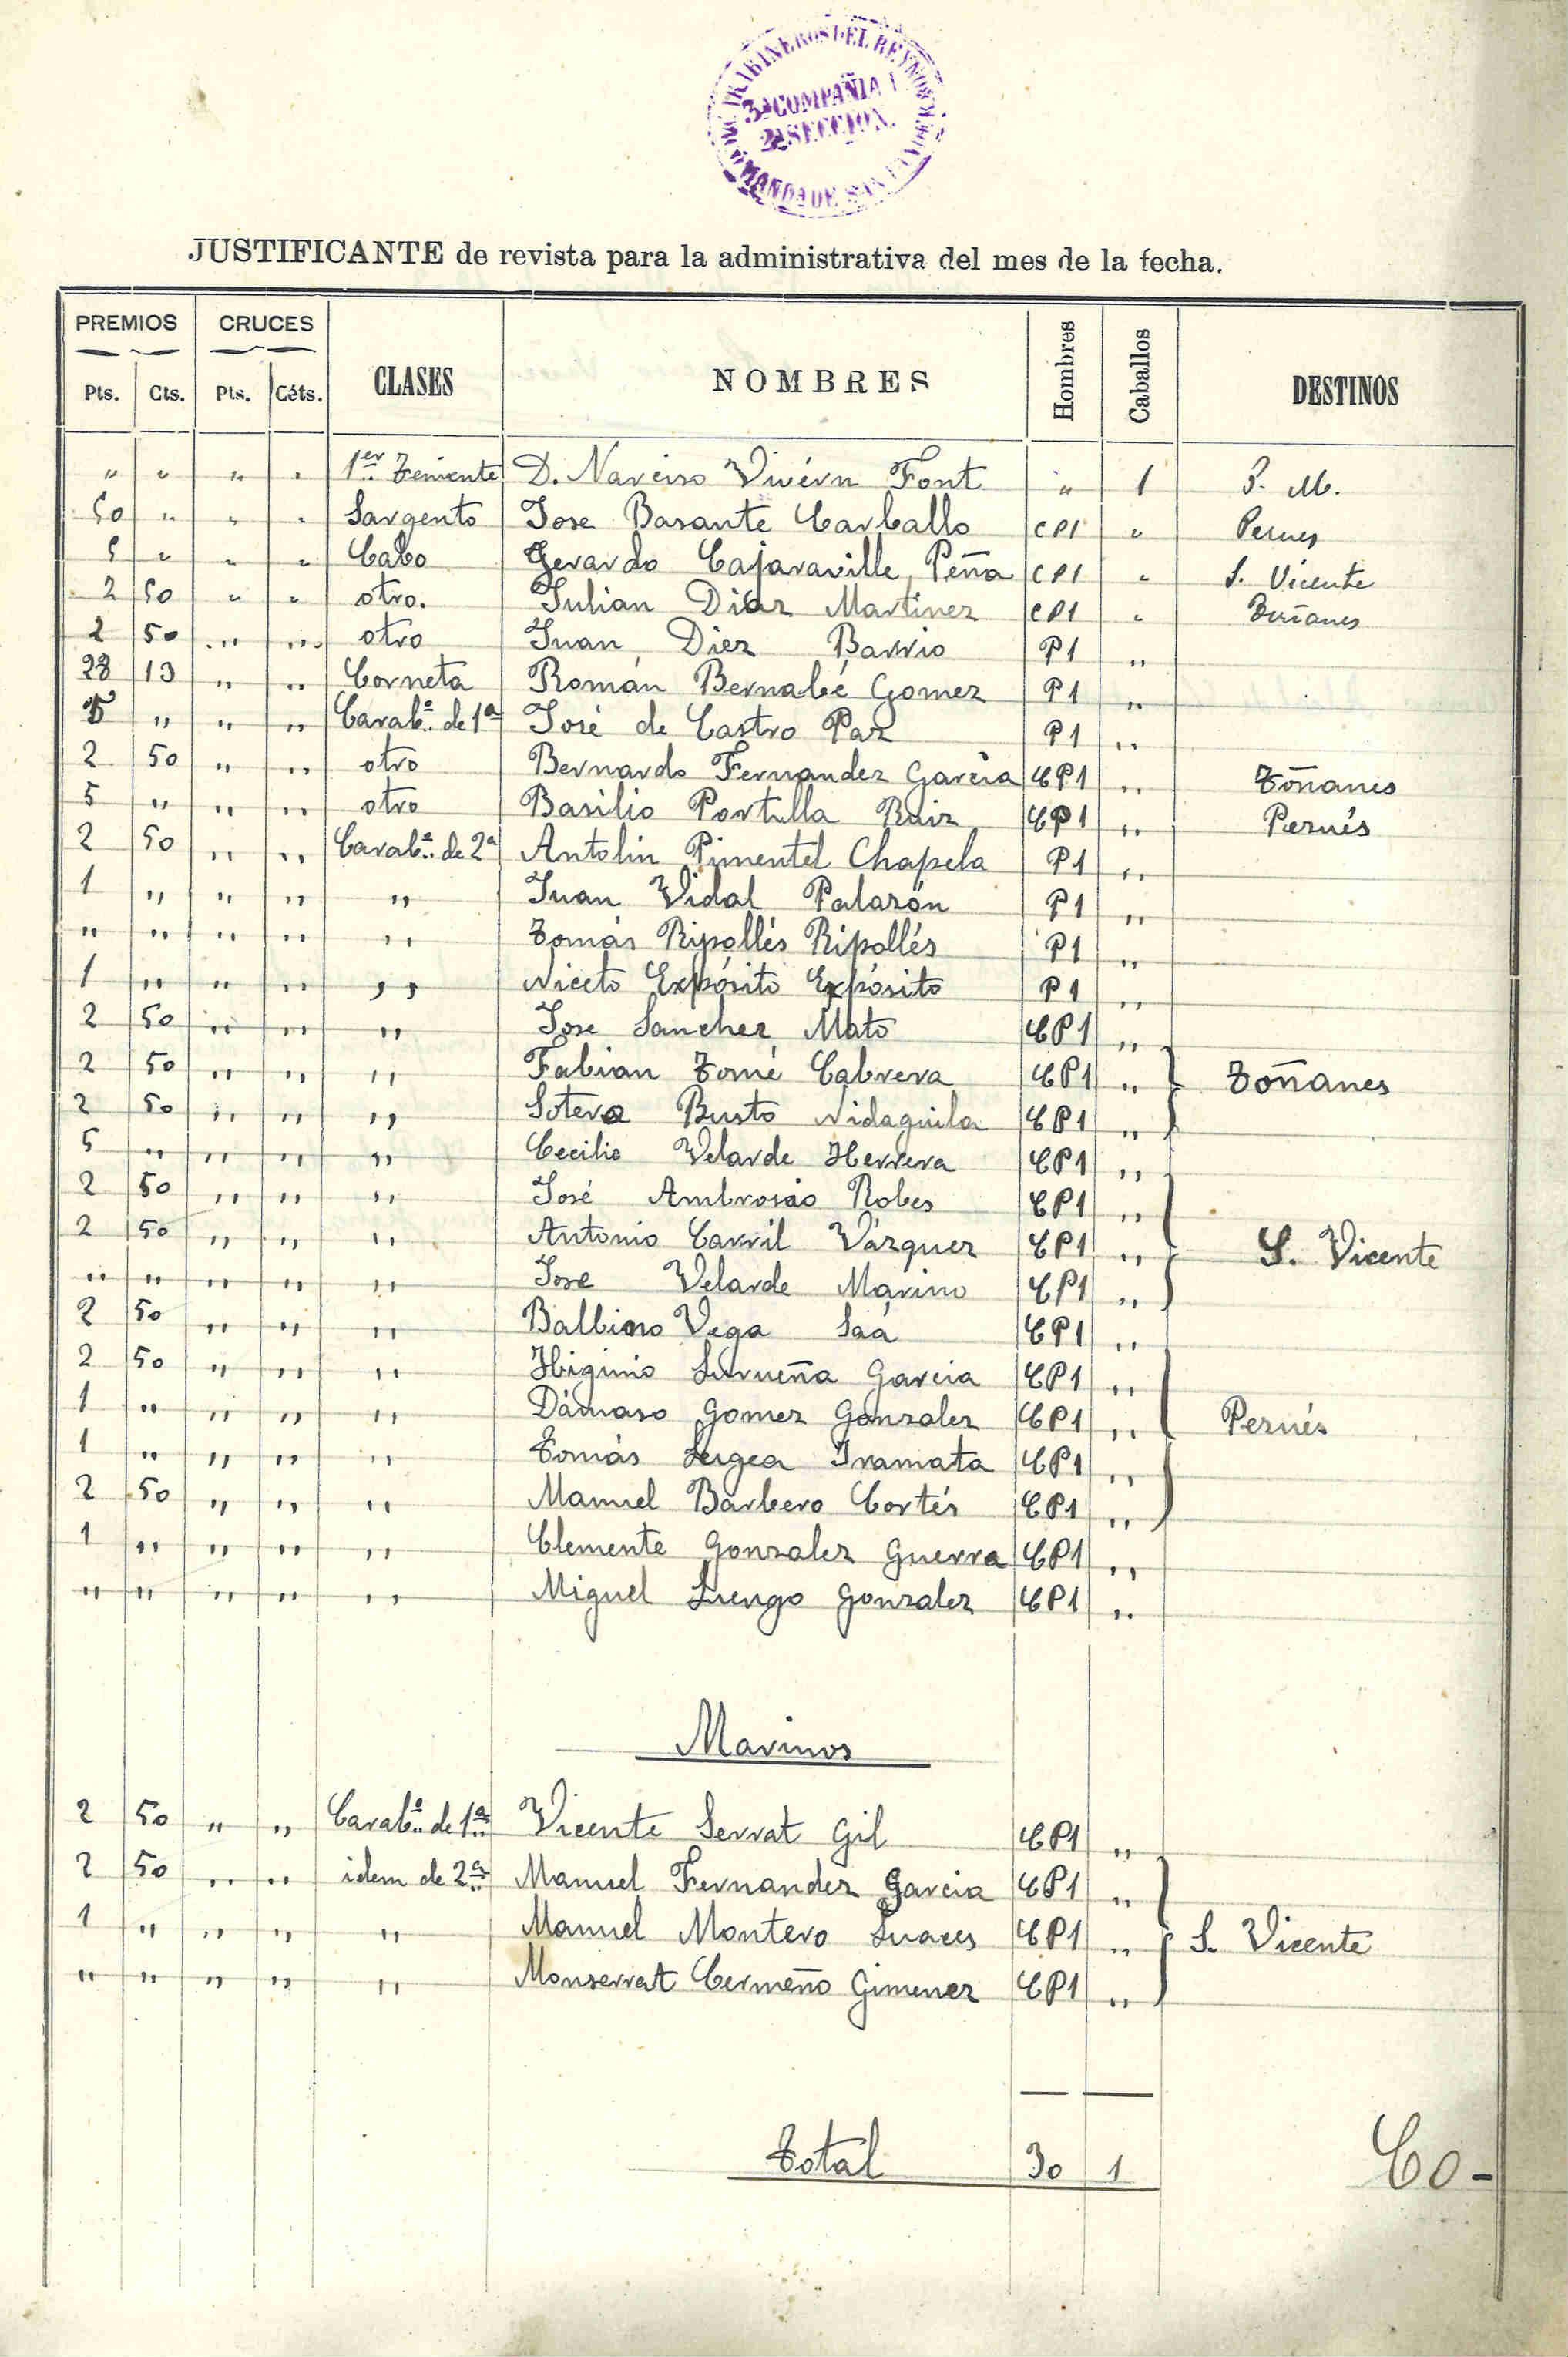 3ª COMPAÑIA
2ª SECCION.
JUSTIFICANTE de revista para la administrativa del mes de la fecha.
PREMIOS CRUCES CLASES NOMBRES Hombres Caballos DESTINOS
Pts. Cts. Pts. Céts.
" " " " 1er Teniente D. Narciso Vivérn Font " 1 P. M.
50 " " " Sargento Jose Basante Carballo CP1 " Pernes
5 " " " Cabo Gerardo Cajaraville Peña CP1 " S. Vicente
2 50 " " otro. Julian Diaz Martinez CP1 " Toñanes
2 50 " " otro Juan Diez Barrio P1 "
28 13 " " Corneta Román Bernabé Gomez P1 "
5 " " " Carabº de 1ª José de Castro Paz P1 "
2 50 " " otro Bernardo Fernandez Garcia CP1 " Toñanes
5 " " " otro Basilio Portilla Ruiz CP1 " Pernés
2 50 " " Carabº de 2ª Antolin Pimentel Chapela P1 "
1 " " " " Juan Vidal Palazón P1 "
" " " " " Tomás Ripollés Ripollés P1 "
1 " " " " Niceto Expósito Expósito P1 "
2 50 " " " Jose Sanchez Mato CP1 "
2 50 " " " Fabian Tomé Cabrera CP1 " Toñanes
2 50 " " " Sotero Busto Nidaguila CP1 "
5 " " " " Cecilio Velarde Herrera CP1 "
2 50 " " " José Ambrosio Robes CP1 "
2 50 " " " Antonio Carril Vázquez CP1 " S. Vicente
" " " " " Jose Velarde Marino CP1 "
2 50 " " " Balbino Vega Saá CP1 "
2 50 " " " Higinio Lurueña Garcia CP1 "
1 " " " " Dámaso Gomez Gonzalez CP1 " Pernés
1 " " " " Tomás Lugea Iramata CP1 "
2 50 " " " Manuel Barbero Cortés CP1 "
1 " " " " Clemente Gonzalez Guerra CP1 "
" " " " " Miguel Luengo Gonzalez CP1 "
Marinos
2 50 " " Carabº de 1ª Vicente Serrat Gil CP1 "
2 50 " " idem de 2ª Manuel Fernandez Garcia CP1 "
1 " " " " Manuel Montero Suares CP1 " S. Vicente
" " " " " Monserrat Cermeño Gimenez CP1 "
Total 30 1
Co-